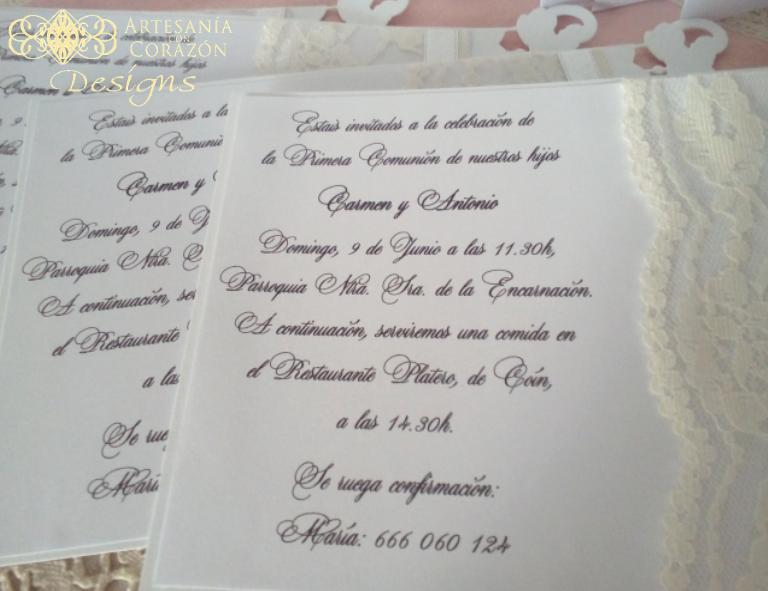 ARTESANÍA
CON
CORAZÓN
Designs
Estais invitados a la celebración de
la Primera Comunión de nuestros hijos
Carmen y Antonio
Domingo, 9 de Junio a las 11.30h,
Parroquia Ntra. Sra. de la Encarnación.
A continuación, serviremos una comida en
el Restaurante Platero, de Coín,
a las 14.30h.
Se ruega confirmación:
María: 666 060 124
Estais invitados a la
la Primera
Carmen y
Domingo, 9 de
Parroquia Ntra.
A continuación,
el Restaurante
a las
Se
de nuestros hijos
Carmen